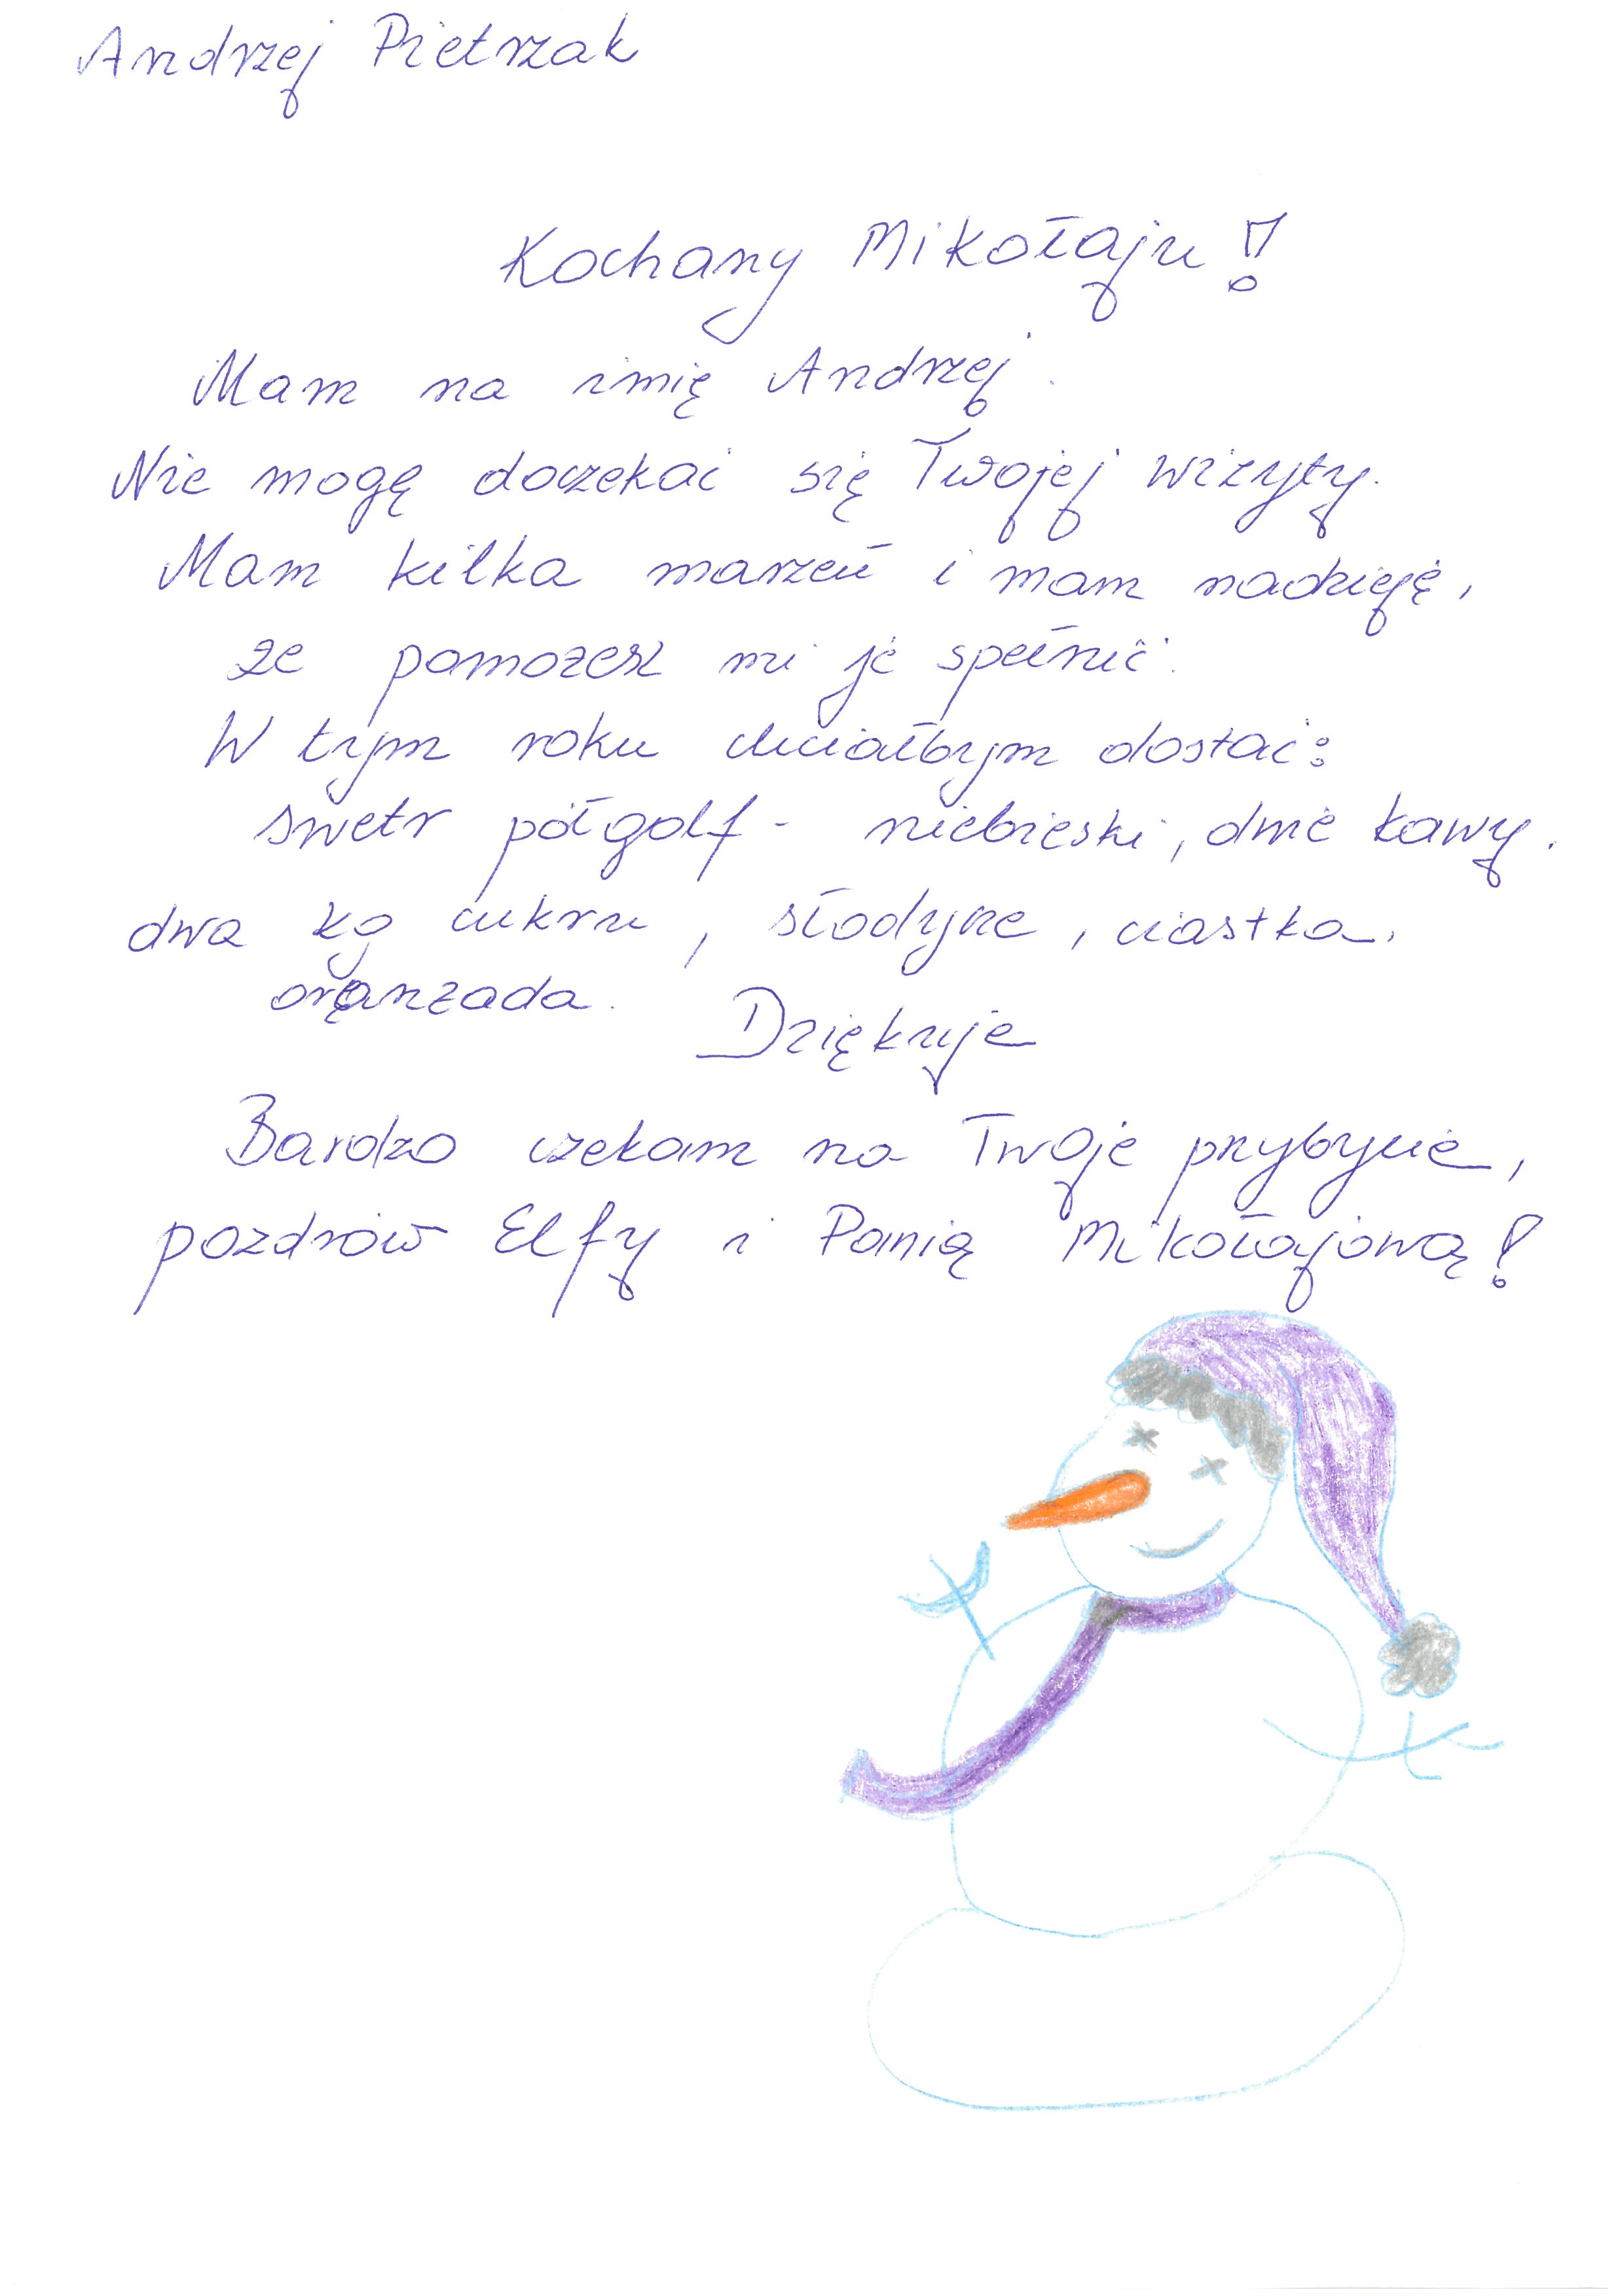 Andrzej Pietrzak
Kochany Mikołaju!
Mam na imię Andrzej.
Nie mogę doczekać się Twojej wizyty.
Mam kilka marzeń i mam nadzieję,
że pomożesz mi je spełnić.
W tym roku chciałbym dostać:
swetr półgolf - niebieski, dwie kawy.
dwa kg cukru, słodycze, ciastka.
oranżada.
Dziękuje
Bardzo czekam na Twoje przybycie,
pozdrów Elfy i Panią Mikołajową!